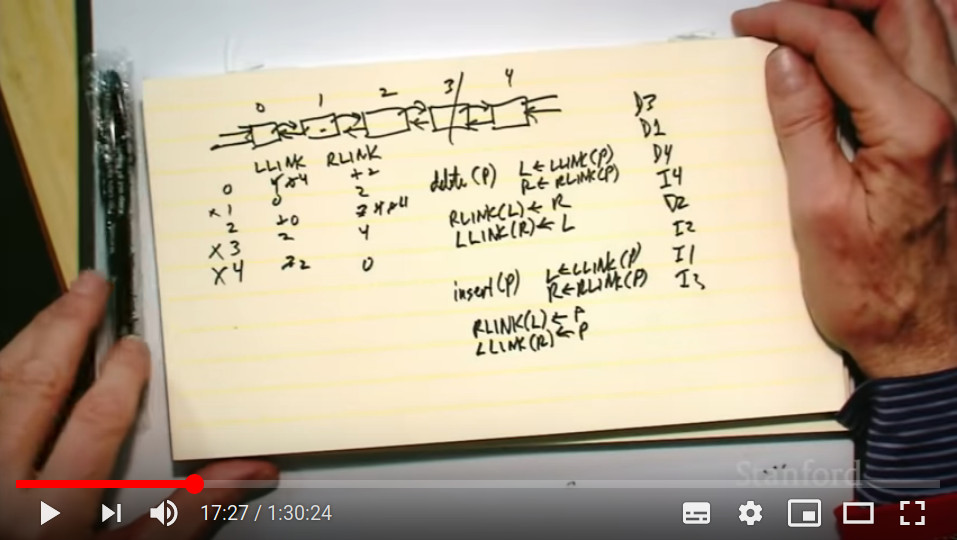 0 1 2 3 4
LLINK RLINK
0
x 1 0 2
2
x 3 2 4
x 4 0
delete(P) L←LLINK(P)
R←RLINK(P)
RLINK(L)←R
LLINK(R)←L
insert(P) L←LLINK(P)
R←RLINK(P)
RLINK(L)←P
LLINK(R)←P
D3
D1
D4
I4
D2
I2
I1
I3
Stanford
17:27 / 1:30:24